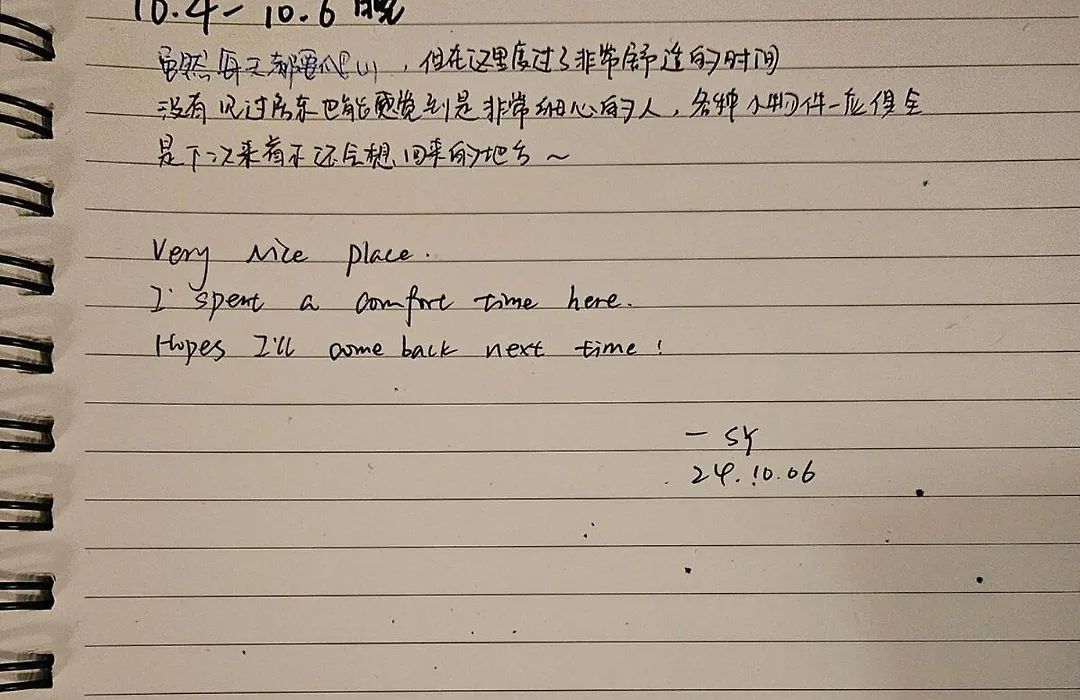 10.4 - 10.6 晚
虽然每天都要爬山，但在这里度过了非常舒适的时间
没有见过房东也能感觉到是非常细心的人，各种小物件一应俱全
是下次来着不还会想回来的地方～
Very Nice place.
I spent a comfort time here.
Hopes I'll come back next time!
— SY
24.10.06